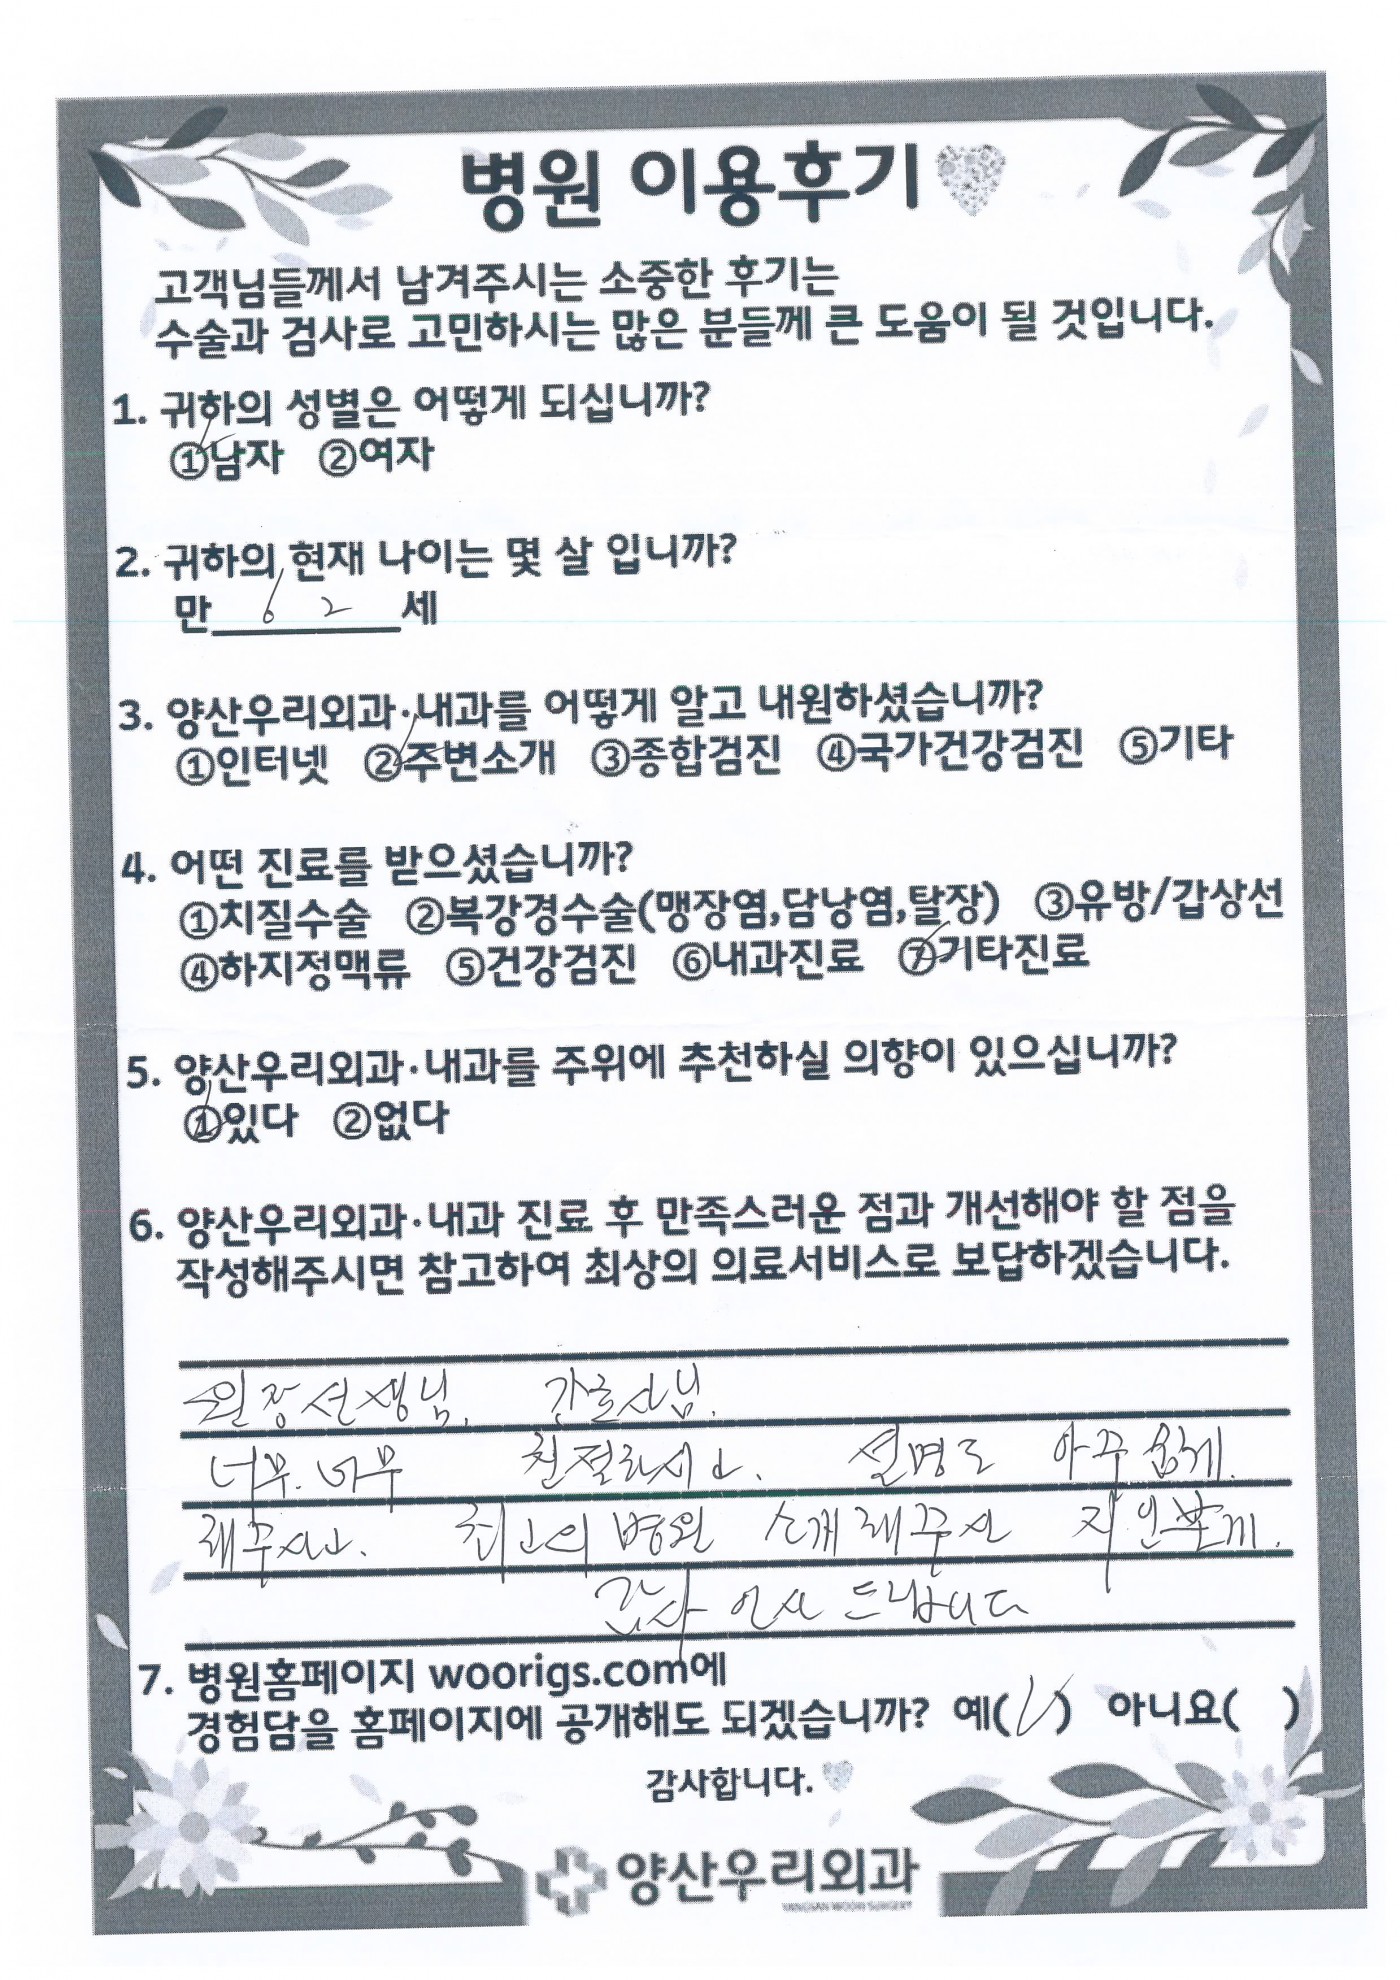 병원 이용후기
고객님들께서 남겨주시는 소중한 후기는
수술과 검사로 고민하시는 많은 분들께 큰 도움이 될 것입니다.
1. 귀하의 성별은 어떻게 되십니까?
①남자 ②여자
2. 귀하의 현재 나이는 몇 살 입니까?
만 62 세
3. 양산우리외과·내과를 어떻게 알고 내원하셨습니까?
①인터넷 ②주변소개 ③종합검진 ④국가건강검진 ⑤기타
4. 어떤 진료를 받으셨습니까?
①치질수술 ②복강경수술(맹장염,담낭염,탈장) ③유방/갑상선
④하지정맥류 ⑤건강검진 ⑥내과진료 ⑦기타진료
5. 양산우리외과·내과를 주위에 추천하실 의향이 있으십니까?
①있다 ②없다
6. 양산우리외과·내과 진료 후 만족스러운 점과 개선해야 할 점을
작성해주시면 참고하여 최상의 의료서비스로 보답하겠습니다.
원장선생님, 간호사님.
너무.너무 친절하시고. 설명도 아주 쉽게.
해주시고. 최고의 병원 소개해주신 지인분께.
감사 인사 드립니다
7. 병원홈페이지 woorigs.com에
경험담을 홈페이지에 공개해도 되겠습니까? 예(✓) 아니요( )
감사합니다.
양산우리외과
YANGSAN WOORI SURGERY